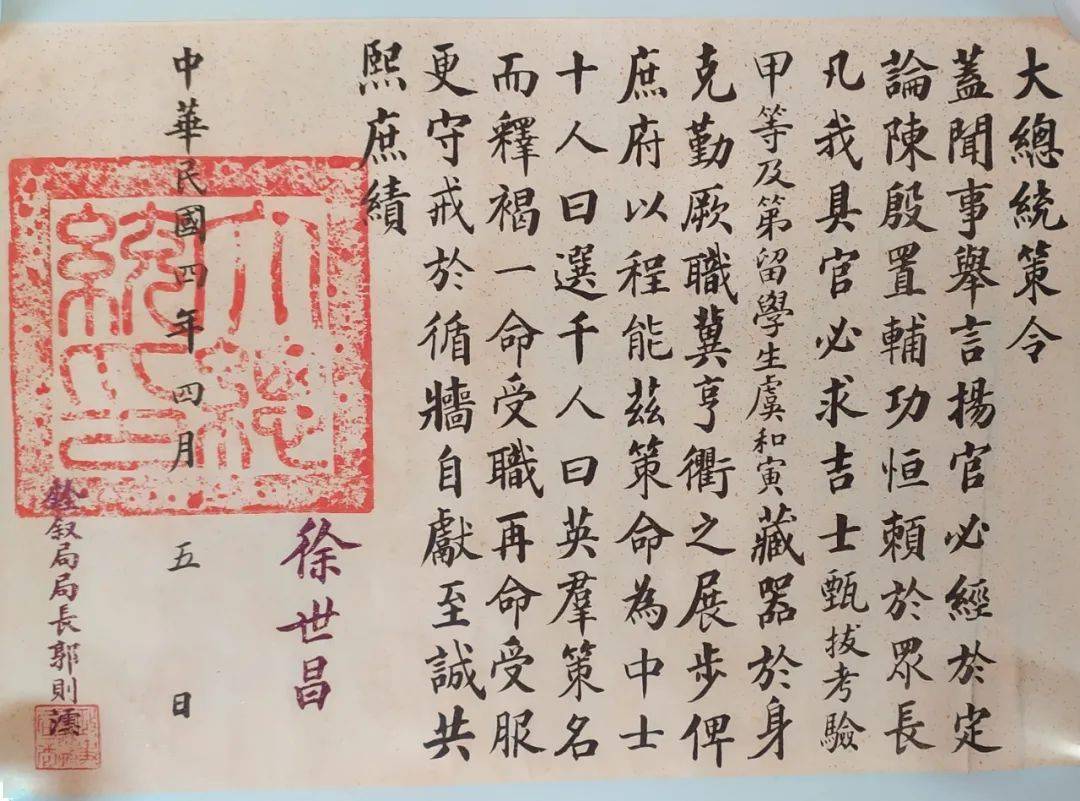 大總統策令
蓋聞事舉言揚官必經於定
論陳殷置輔功恒賴於眾長
凡我具官必求吉士甄拔考驗
甲等及第留學生虞和寅藏器於身
克勤厥職冀亨衢之展步俾
庶府以程能茲策命為中士
十人曰選千人曰英羣策名
而釋褐一命受職再命受服
更守戒於循牆自獻至誠共
熙庶績
徐世昌
中華民國四年四月五日
大總
統印
銓叙局局長郭則澐